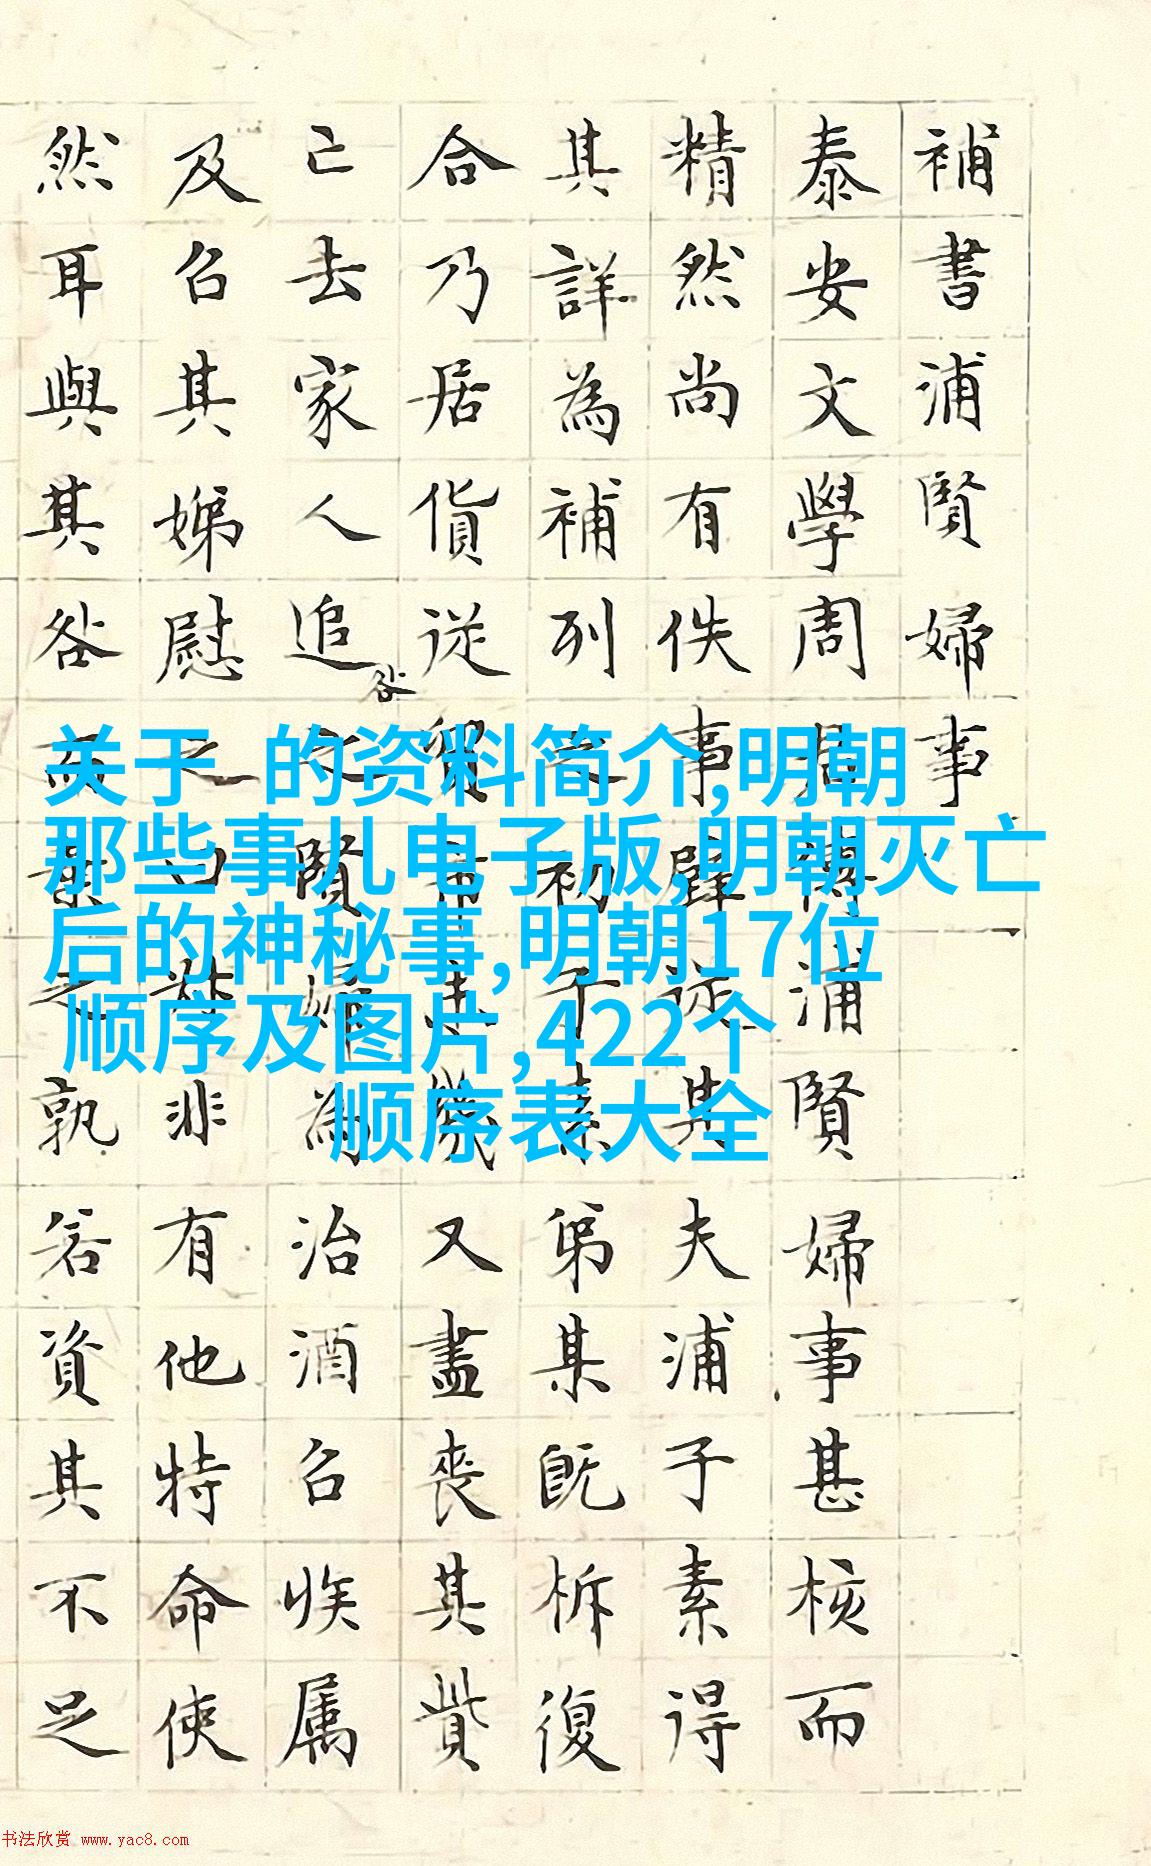 補書浦賢婦事
泰安文學周浦賢婦事甚核而
精然尚有佚事其夫浦子素得
其詳為補列初素弟某既析復
合乃居貨従又盡喪其貲
亡去家人追咎賢婦為治酒召收族属
及召其娣慰之曰非有他特命使
然耳與其咎而棄之孰若資其不足
关于 的资料简介,明朝
那些事儿电子版,明朝灭亡
后的神秘事,明朝17位
顺序及图片,422个
顺序表大全
书法欣赏 www.yac8.com